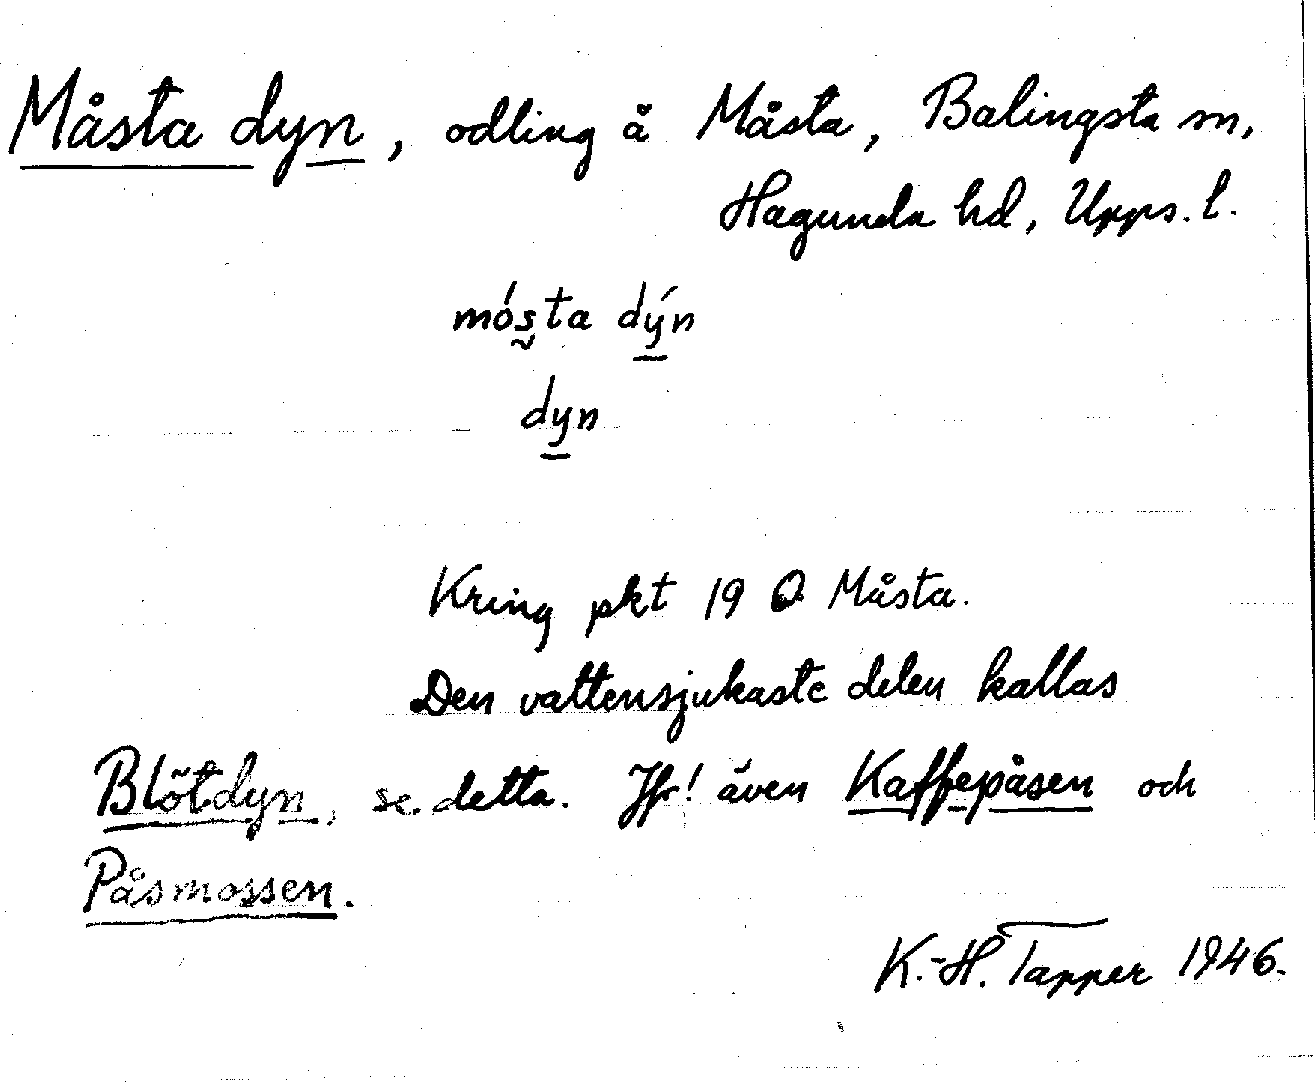 Måsta dyn, odling å Måsta, Balingsta sn,
Hagunda hd, Upps. l.
mósta dýn
dyn
Kring pkt 19 O Måsta.
Den vattensjukaste delen kallas
Blötdyn, se detta. Jfr! även Kaffepåsen och
Påsmossen.
K.-H. Tapper 1946.